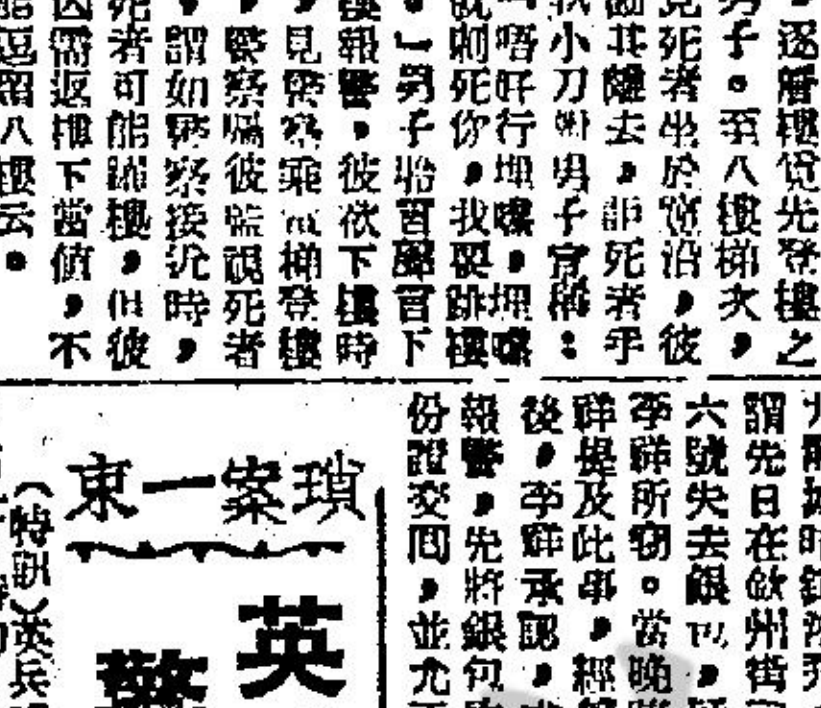 ，逐層樓覓先登樓之
男子。至八樓梯次，
見死者坐於窗沿，彼
勸其離去，詎死者手
執小刀，男子言稱：
唔好行埋嚟，埋嚟
就刺死你，我要跳樓
。」男子聆言，
樓報警，彼欲下樓時
，見警察乘電梯登樓
，警察囑彼監視死者
，謂如警察接近時，
死者可能跳樓，但彼
因需返樓下當值，不
能逗留八樓云。
謂先日在欽州街
六號失去銀包，
李祥所竊。當晚
祥提及此事，經
後，李祥承認，
報警，先將銀包
份證交回，並允
瑣案一束
英
警
（特訊）英兵